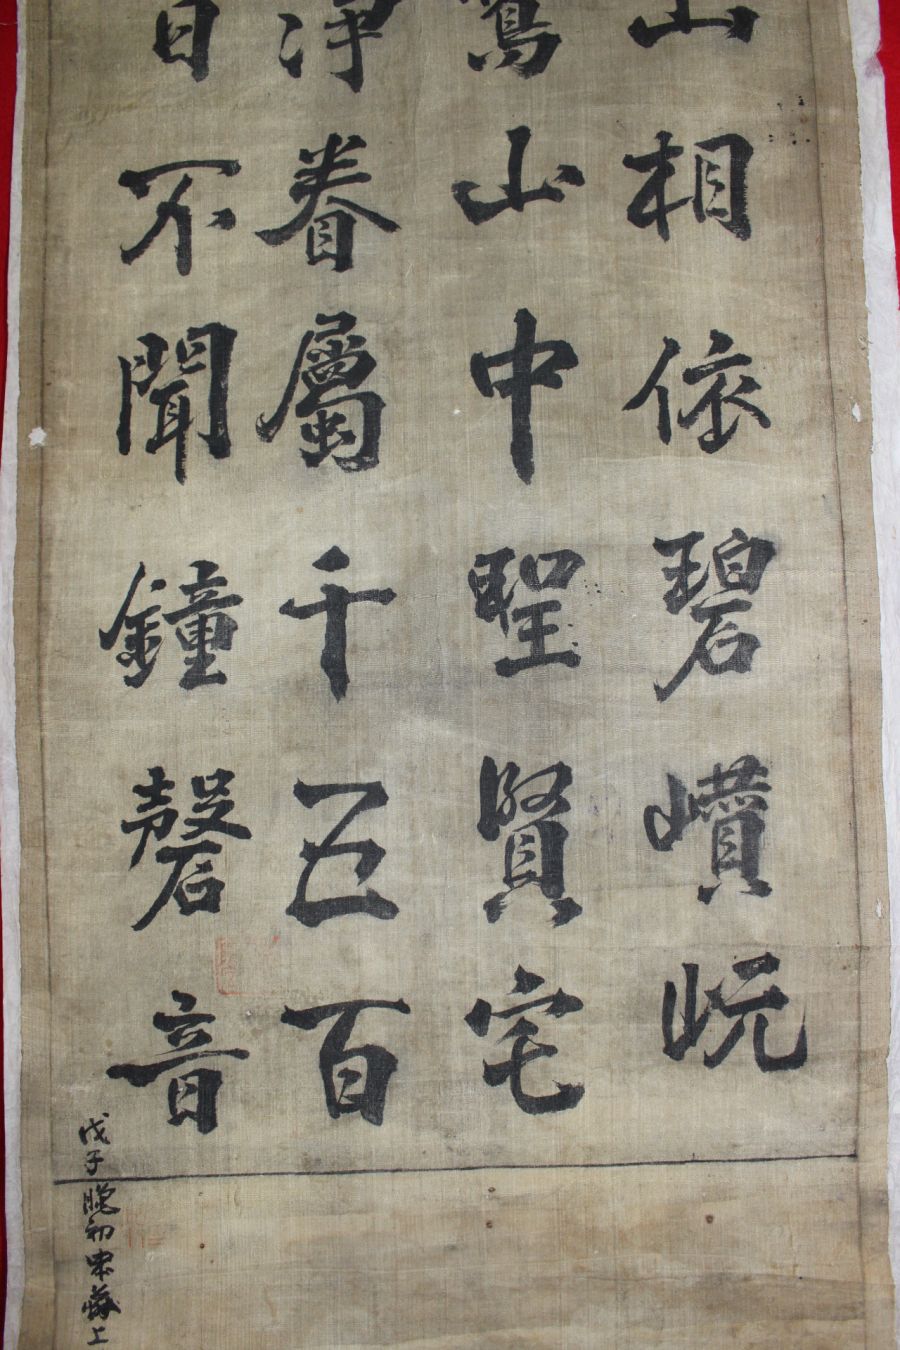 山相依碧巑岏
鷲山中聖賢宅
淨眷屬千五百
日不聞鐘磬音
戊子晩初
上